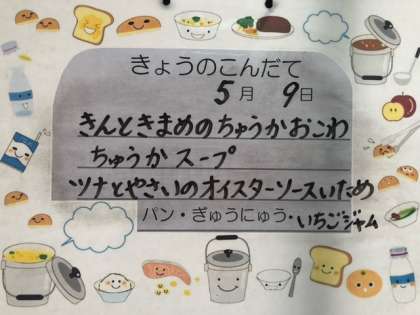 きょうのこんだて
5月9日
きんときまめのちゅうかおこわ
ちゅうかスープ
ツナとやさいのオイスターソースいため
パン・ぎゅうにゅう・いちごジャム